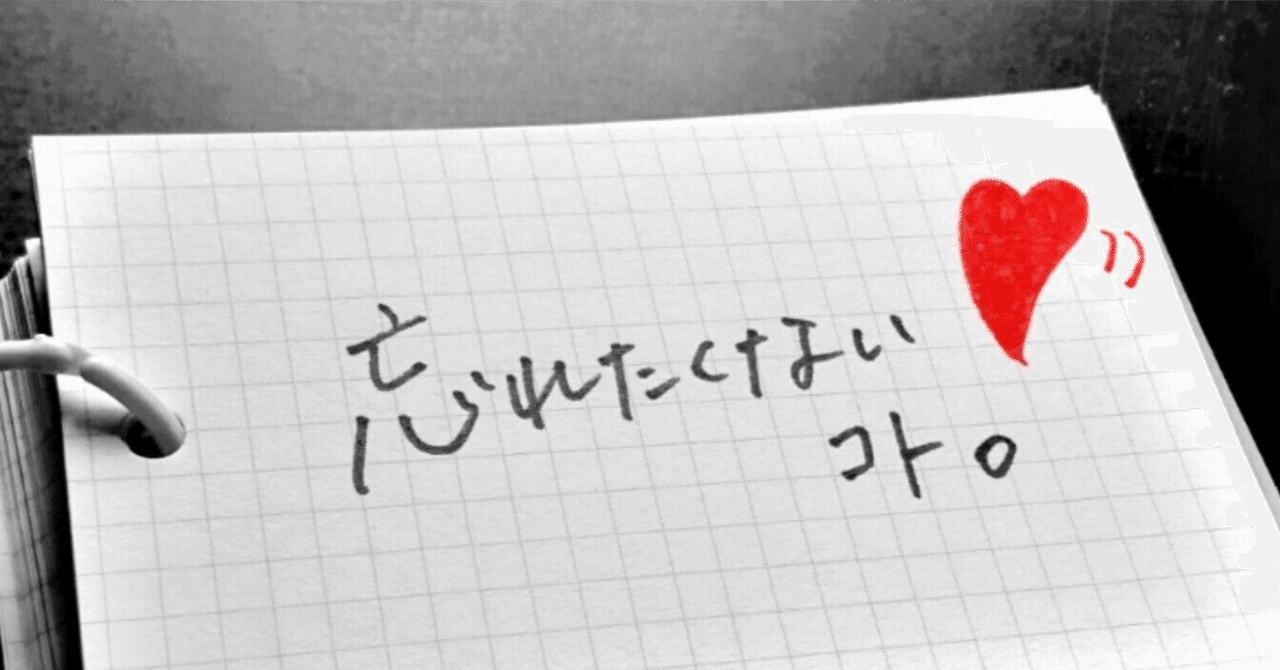 忘れたくない
コト。